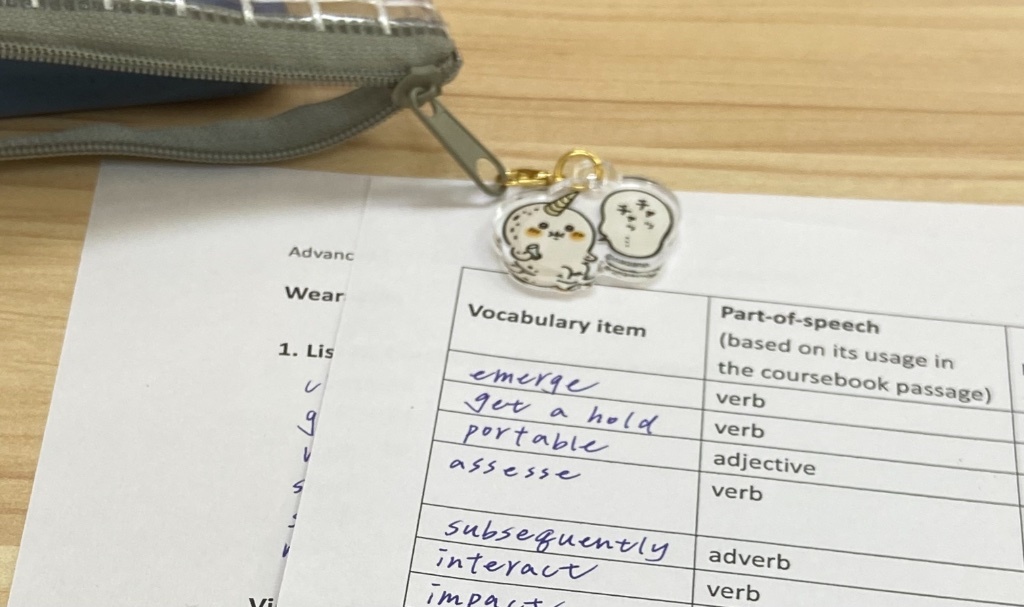 チャッ
チャッ
...
Advanc
Wear
1. Lis
Vocabulary item
Part-of-speech
(based on its usage in
the coursebook passage)
emerge
verb
get a hold
verb
portable
adjective
assesse
verb
subsequently
adverb
interact
verb
impact
Vi